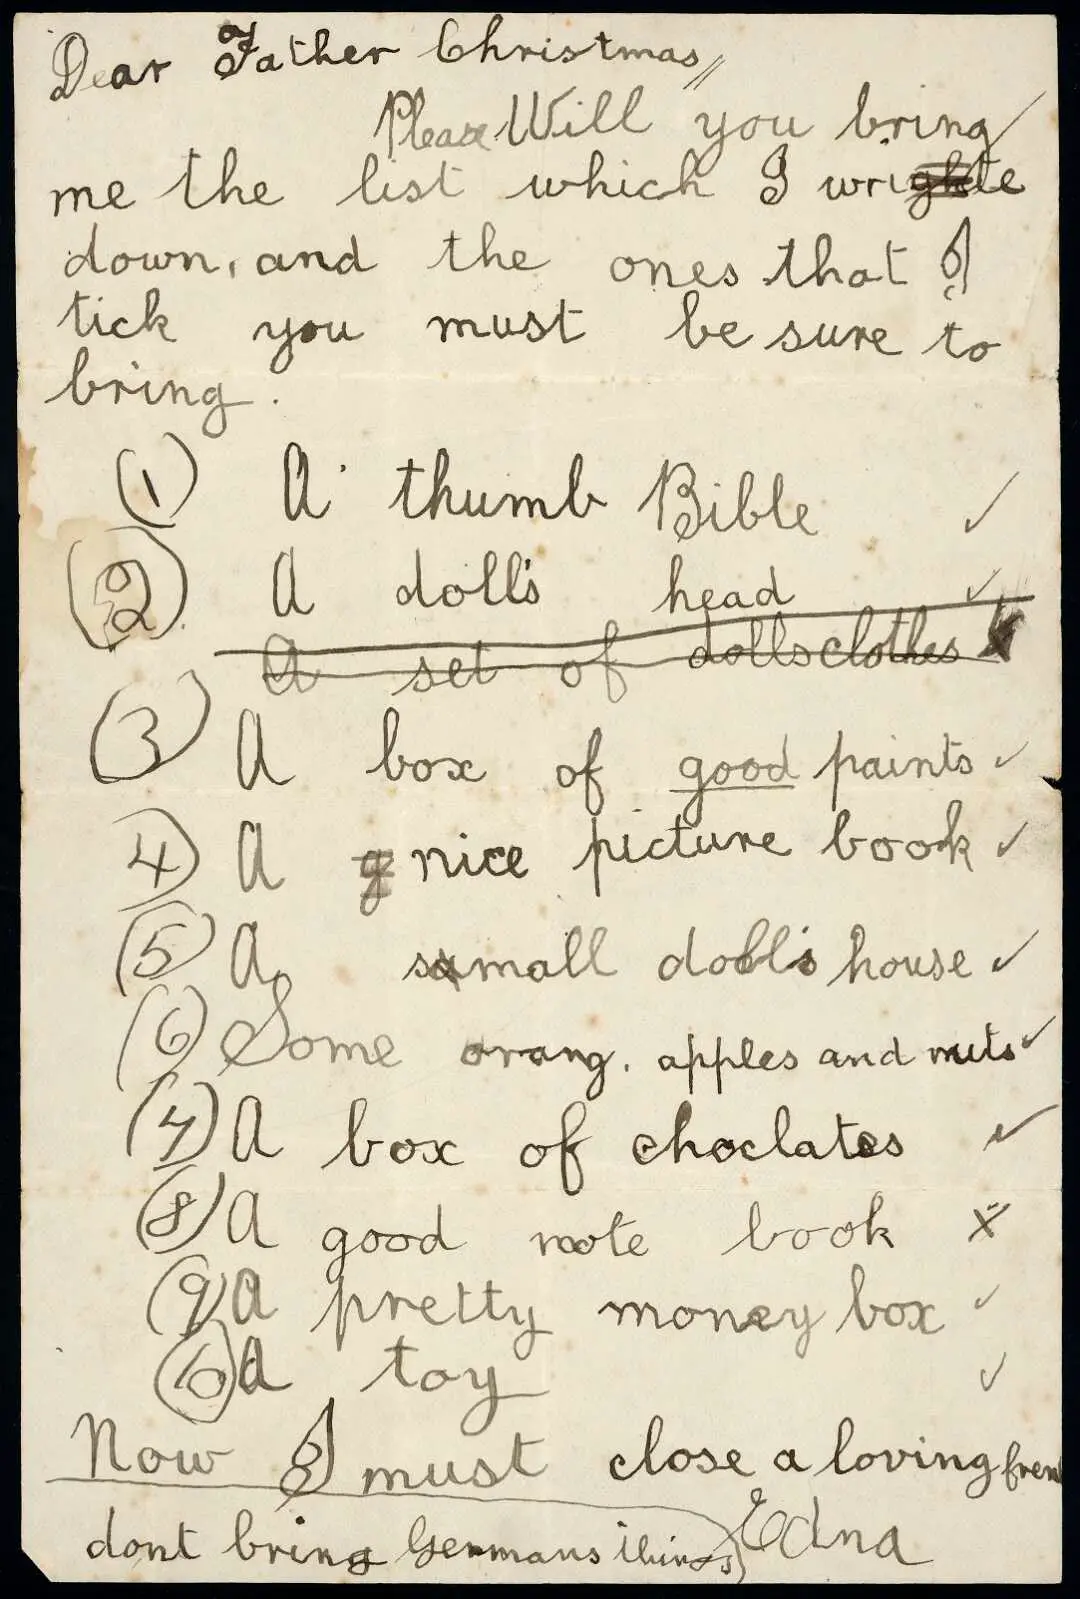 Dear Father Christmas,
Please Will you bring
me the list which I write
down, and the ones that I
tick you must be sure to
bring.
(1) A thumb Bible ✓
(2) A doll's head ✓
A set of dolls clothes x
(3) A box of good paints ✓
(4) A nice picture book ✓
(5) A small doll's house ✓
(6) Some orang, apples and nuts ✓
(7) A box of choclates ✓
(8) A good note book x
(9) A pretty money box ✓
(10) A toy ✓
Now I must close a loving fren
dont bring Germans things Edna